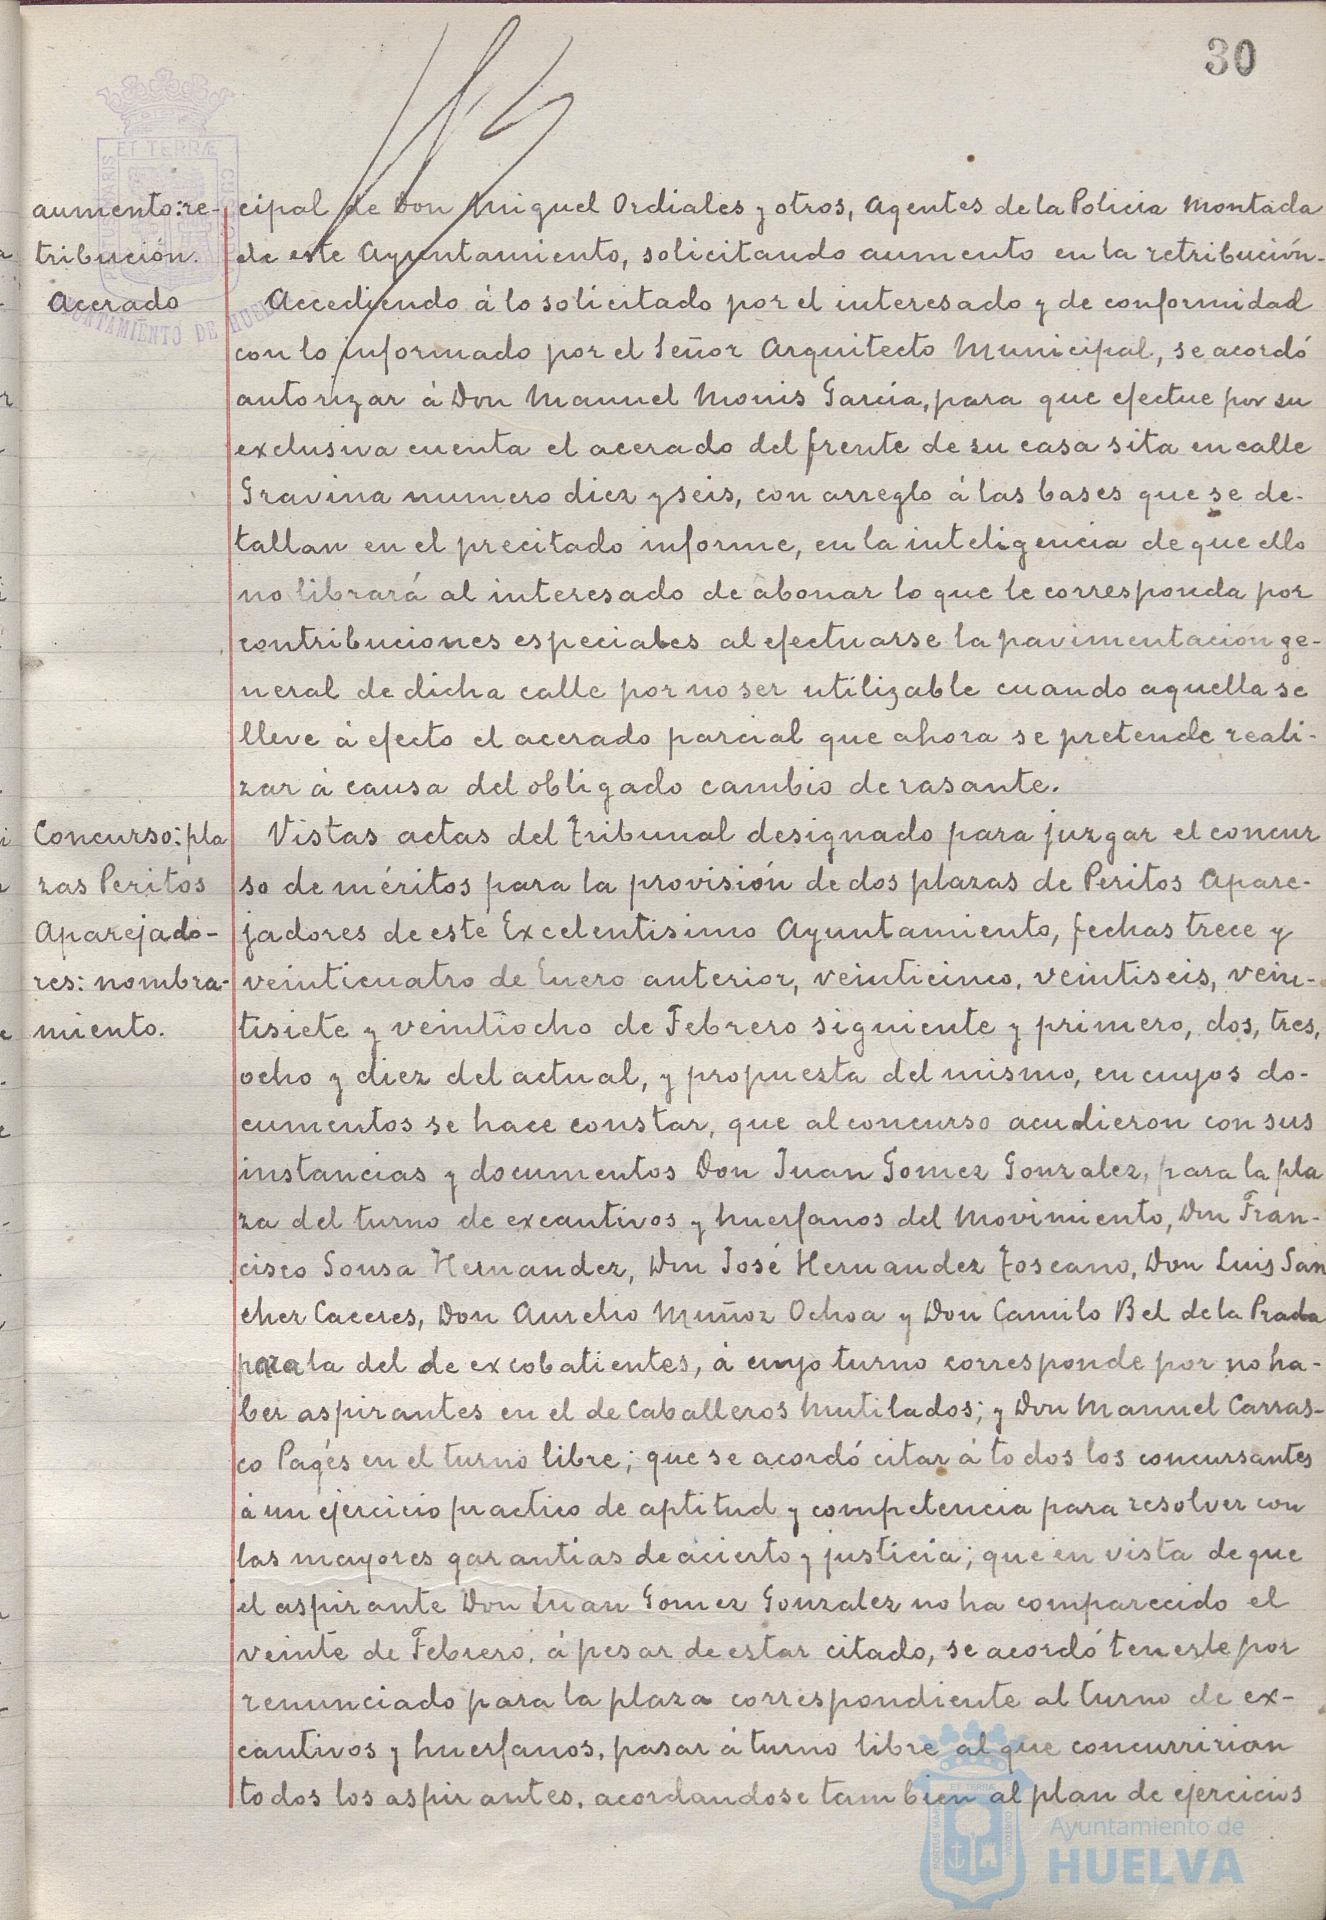 30
aumento: re-
tribución.
Acerado
cipal de Don Miguel Ordiales y otros, Agentes de la Policia Montada
de este Ayuntamiento, solicitando aumento en la retribución.
Accediendo á lo solicitado por el interesado y de conformidad
con lo informado por el Señor Arquitecto Municipal, se acordó
autorizar á Don Manuel Monis García, para que efectue por su
exclusiva cuenta el acerado del frente de su casa sita en calle
Gravina numero diez y seis, con arreglo á las bases que se de-
tallan en el precitado informe, en la inteligencia de que ello
no librará al interesado de abonar lo que le corresponda por
contribuciones especiales al efectuarse la pavimentación ge-
neral de dicha calle por no ser utilizable cuando aquella se
lleve á efecto el acerado parcial que ahora se pretende reali-
zar á causa del obligado cambio de rasante.
Concurso: pla
zas Peritos
Aparejado-
res: nombra-
miento.
Vistas actas del Tribunal designado para juzgar el concur
so de méritos para la provisión de dos plazas de Peritos Apare-
jadores de este Excelentisimo Ayuntamiento, fechas trece y
veinticuatro de Enero anterior, veinticinco, veintiseis, vein-
tisiete y veintiocho de Febrero siguiente y primero, dos, tres,
ocho y diez del actual, y propuesta del mismo, en cuyos do-
cumentos se hace constar, que al concurso acudieron con sus
instancias y documentos Don Juan Gomez Gonzalez, para la pla
za del turno de excautivos y huerfanos del Movimiento, Don Fran-
cisco Sousa Hernandez, Don José Hernandez Toscano, Don Luis San
chez Caceres, Don Aurelio Muñoz Ochoa y Don Camilo Bel de la Prada
para la del de excobatientes, á cuyo turno corresponde por no ha-
ber aspirantes en el de Caballeros Mutilados; y Don Manuel Carras-
co Pagés en el turno libre; que se acordó citar á todos los concursantes
á un ejercicio practico de aptitud y competencia para resolver con
las mayores garantias de acierto y justicia; que en vista de que
el aspirante Don Juan Gomez Gonzalez no ha comparecido el
veinte de Febrero, á pesar de estar citado, se acordó tenerle por
renunciado para la plaza correspondiente al turno de ex-
cautivos y huerfanos, pasar á turno libre al que concurririan
todos los aspirantes, acordandose tambien al plan de ejercicios
Ayuntamiento de
HUELVA